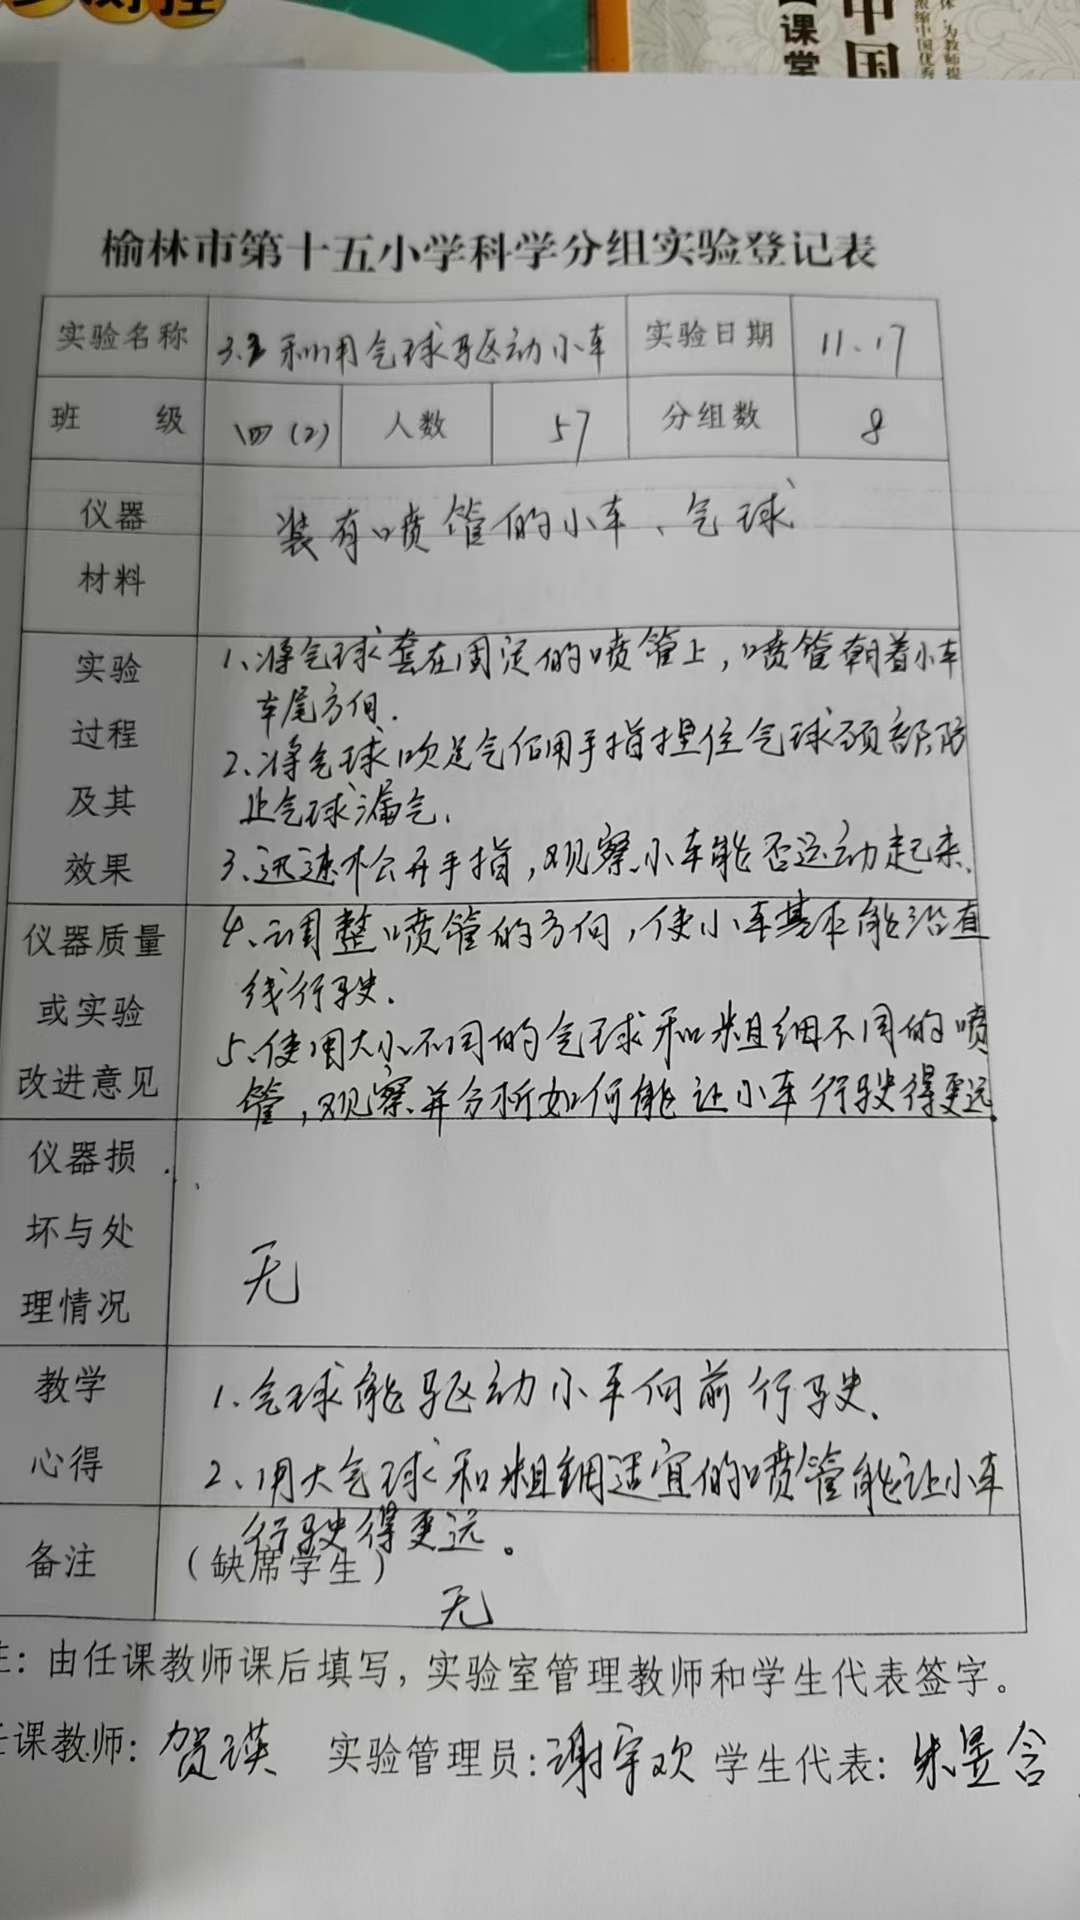 课堂
中国
榆林市第十五小学科学分组实验登记表
实验名称 3.2 利用气球驱动小车 实验日期 11.17
班 级 四(2) 人数 57 分组数 8
仪器
材料
装有喷管的小车、气球
实验
过程
及其
效果
1、将气球套在固定的喷管上,喷管朝着小车
车尾方向.
2、将气球吹足气后用手指捏住气球颈部防
止气球漏气.
3、迅速松开手指,观察小车能否运动起来.
仪器质量
或实验
改进意见
4、调整喷管的方向,使小车基本能沿直
线行驶.
5、使用大小不同的气球和粗细不同的喷
管,观察并分析如何能让小车行驶得更远.
仪器损
坏与处
理情况
无
教学
心得
1.气球能驱动小车向前行驶.
2、用大气球和粗细适宜的喷管能让小车
行驶得更远。
备注
(缺席学生)
无
注:由任课教师课后填写,实验室管理教师和学生代表签字。
任课教师:贺瑛 实验管理员:谢宇欢 学生代表:朱昱含